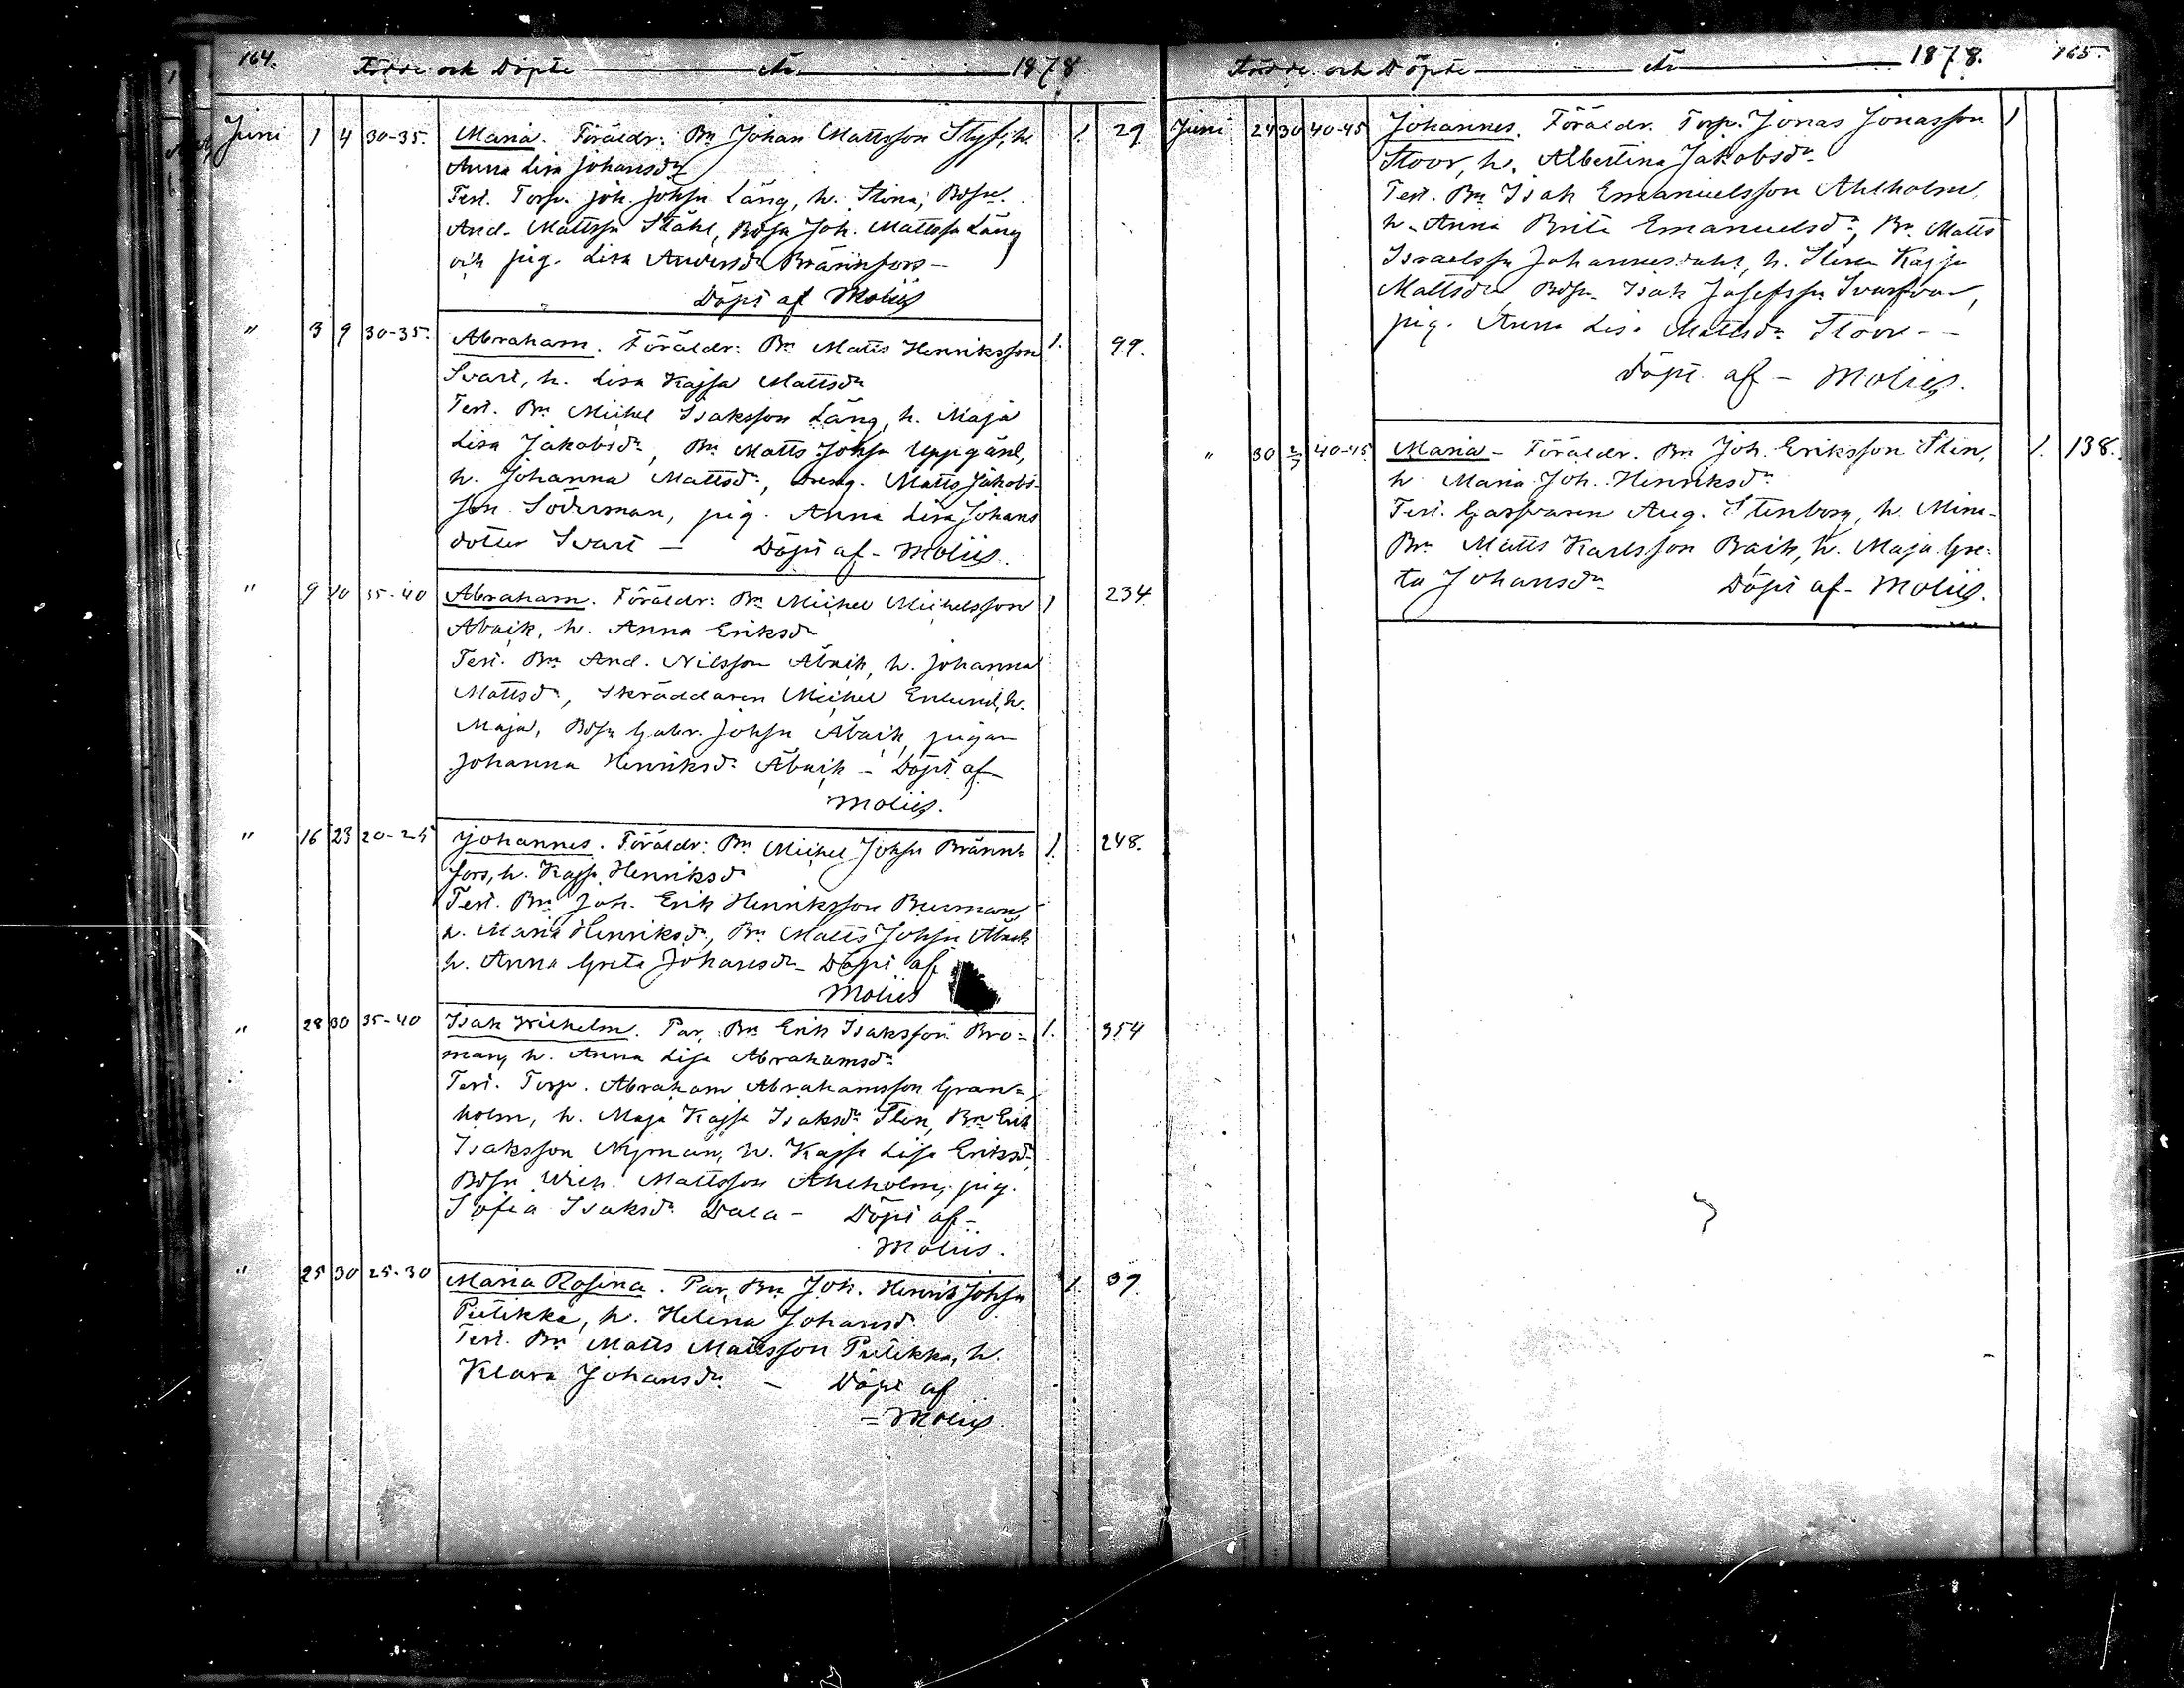 164.
Födde och Döpte År 1878
Juni 1 4 30-35. Maria. Föräldr: Bn Johan Mattsson Styf, h. 1. 29
Anna Lisa Johansdr
Test. Torp. Joh. Johsn Läng, h. Stina, Bdsn
And. Mattssn Ståhl, Bdsn Joh. Mattssn Läng
och pig. Lisa Andersdr Brännfors -
Döpt af Moliis
" 3 9 30-35. Abraham. Föräldr: Bn Matts Henriksson 1. 99.
Svart, h. Lisa Kajsa Mattsdr
Test. Bn Michel Isaksson Läng, h. Maja
Lisa Jakobsdr, Bn Matts Johsn Uppgård,
h. Johanna Mattsdr, dreng. Matts Jakobs-
son Söderman, pig. Anna Lisa Johans
dotter Svart - Döpt af - Moliis.
" 9 10 35-40 Abraham. Föräldr: Bn Michel Michelsson 1 234
Åbäck, h. Anna Eriksdr
Test. Bn And. Nilsson Åbäck, h. Johanna
Mattsdr, Skräddaren Michel Enlund, h.
Maja, Bdsn Gabr. Johsn Åbäck, pigan
Johanna Henriksdr Åbäck - Döpt af
Moliis.
" 16 23 20-25 Johannes. Föräldr: Bn Michel Johsn Bränn- 1. 248.
fors, h. Kajsa Henriksdr
Test. Bn Joh. Erik Henriksson Burman,
h. Maria Henriksdr, Bn Matts Johsn Åbäck
h. Anna Greta Johansdr - Döpt af
Moliis
" 28 30 35-40 Isak Wilhelm. Par. Bn Erik Isaksson Bro- 1. 354
man, h. Anna Lisa Abrahamsdr
Test. Torp. Abraham Abrahamsson Gran-
holm, h. Maja Kajsa Isaksdr Sten, Bn Erik
Isaksson Nyman, h. Kajsa Lisa Eriksdr,
Bdsn Wilh. Mattsson Ahlholm, pig.
Sofia Isaksdr Dala - Döpt af -
Moliis.
" 25 30 25-30 Maria Rosina. Par. Bn Joh. Henrik Johsn 1. 39.
Peitikka, h. Helena Johansd
Test. Bn Matts Mattsson Peitikka, h.
Klara Johansdr - Döpt af
= Moliis.
Födde och Döpte År 1878. 165.
Juni 24 30 40-45 Johannes. Föräldr. Torp. Jonas Jonasson 1
Stoor, h. Albertina Jakobsdr
Test. Bn Isak Emanuelsson Ahlholm,
h. Anna Brita Emanuelsdr, Bn Matts
Israelssn Johannesdahl, h. Stina Kajsa
Mattsdr, Bdsn Isak Josefssn Svarfvar,
pig. Anna Lis. Mattsdr Stoor - -
Döpt af - Moliis.
" 30 2/7 40-45 Maria - Föräldr. Bn Joh. Eriksson Sten, 1. 138.
h Maria Joh. Henriksdr
Test. Garfvaren Aug. Stenborg, h. Mina -
Bn Matts Karlsson Back, h. Maja Gre-
ta Johansdr Döpt af - Moliis.